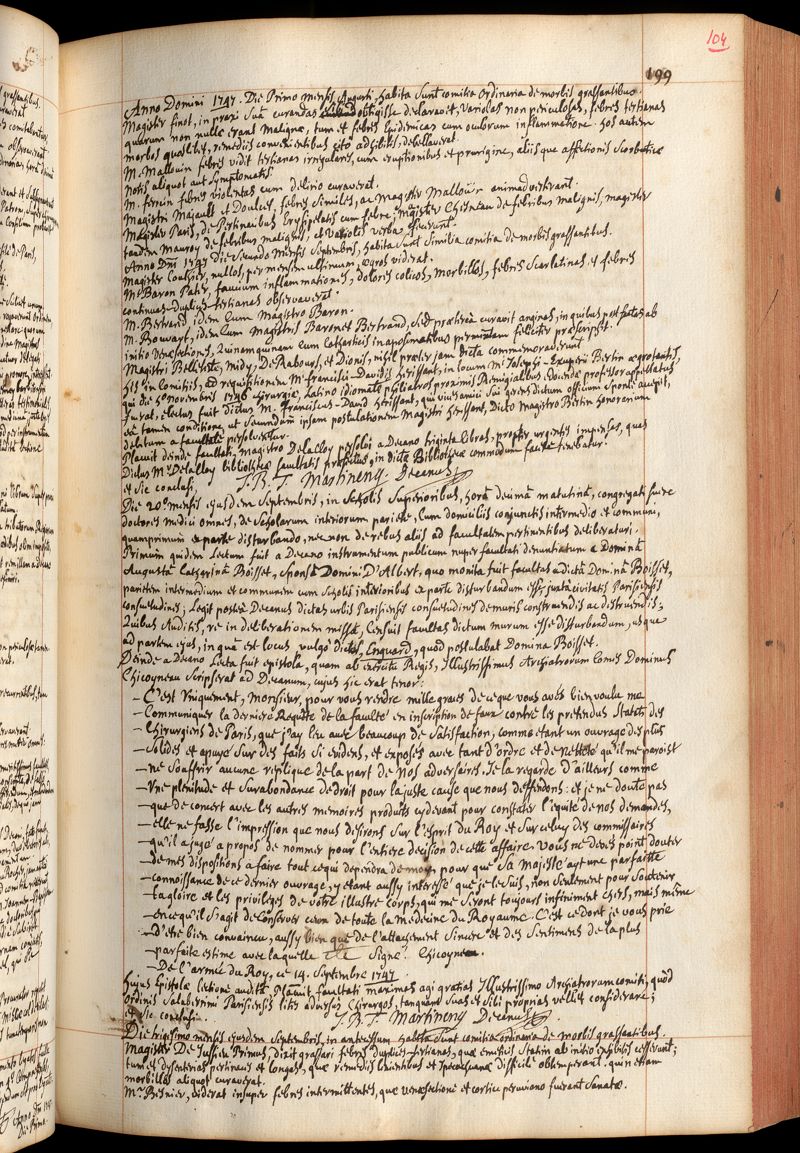 104
199
Anno Domini 1747. Die Primo mensis Augusti habita Sunt comitia ordinaria de morbis grassantibus.
Magister finot, in praxi Suâ curandas obtigisse declaravit, Variolas non periculosas, febres tertianas
quarum non nullæ erant Malignæ, tum et febres Epidemicas cum oculorum inflammatione. hos autem
morbos quoslibet, remediis convenientibus citò adhibitis, debellaverat.
M. Malloüin febres vidit tertianas irregulares, cum eruptionibus et prurigine, aliisque affectionis Scorbuticæ
notis aliquot aut Symptomatis.
M. fercin febres violentas cum delirio curaverat.
Magistri Majault et Doulcet, febres Similes, ac Magister Malloüir animadverterant.
Magister Paris, de Pertinacibus Erysipelatis cum febre; Magister Chisneau de febribus malignis, magister
tandem Mauroy de febribus malignis, et Variolis verba fecerunt.
Anno Dni 1747 die Secundo Mensis Septembris, habita Sunt Similia comitia de morbis grassantibus.
Magister Couthier, nullos, per mensem ultimum, ægros viderat.
Mr Baron Pater, faucium inflammationes, dolores colicos, morbillos, febres Scarlatinas et febres
continuas-duplici-tertianas observaverat.
M. Bertrand idem cum Magistro Baron.
M. Bowart, idem cum Magistris Baron et Bertrand, Sed prætereà curavit anginas, in quibus post factas ab
initio venæsectiones, Quinamquinam cum Catharticis in aposematibus feliciter præscripsit.
Magistri Belleteste, Midy, De Rabours, et Dionis, nihil præter jam dicta commemoraverunt.
his in Comitiis, ad requisitionem Mi francisci-Davidis hérissant, in locum Mi Josephi-Exuperii Bertin ægrotantis,
qui die 5o novembris 1746 Chirurgiæ, latino idiomate philiatros proximis Remigialibus edocendæ professor appellatus
fuerat, electus fuit dictus M. franciscus-David hérissant, qui vices amici Sui gerens dictum officium Spontè accepit,
eâ tamen conditione, ut Secundùm ipsam postulationem Magistri herissant, Dicto Magistro Bertin honorarium
debitum a facultate persolveretur.
Placuit deinde facultati, Magistro De la Cloy persolvi a Decano triginta libras, propter urgentes impensas, quas
Dictus Mr Delalloy bibliothecæ facultatis præfectus, in dictæ Bibliothecæ commodum facere tenebatur.
et Sic conclusi, J. B. T. Martinenq Decanus
Die 20a mensis ejusdem Septembris, in Scholis Superioribus, horâ decimâ matutinâ, congregati fuere
doctores medici omnes, de Scholarum interiorum pariete, Cum domiciliis conjunctis intermedio et communi,
quamprimùm ex parte disturbando, nec non de rebus aliis ad facultatem pertinentibus deliberaturi.
Primùm quidem Lectum fuit a Decano instrumentum publicum nuper facultati denuntiatum a Dominâ
Augustâ Catharinâ Boisset, Sponsâ Domini D'Albert, quo monita fuit facultas a dictâ Dominâ Boisset,
parietem intermedium et communem cum Scholis interioribus ex parte disturbandum esse, juxtà civitatis Parisiensis
consuetudines; Legit posteà Decanus dictas urbis Parisiensis consuetudines de muris construendis ac distruendis;
Quibus Auditis, re in deliberationem missâ, Censuit facultas dictum murum esse disturbandum, usque
ad partem ejus, in quâ est locus vulgò dictus, Encuard, quod postulabat Domina Boisset.
Deinde a Decano Lecta fuit epistola, quam ab exercitu Regis, Illustrissimus Archiatrorum Comes Dominus
Chicoyneau Scripserat ad Decanum, cujus hic erat tenor:
— C'est Vniquement, Monsieur, pour vous rendre mille graces de ce que vous avés bien voulu me
— Communiquer la derniere Requête de la faculté en inscription de faux contre les pretendus Statuts des
— Chirurgiens de Paris, que j'ay leu avec beaucoup de Satisfaction, comme etant un ouvrage des plus
— Solides et apuyé Sur des faits Si evidens, et exposés avec tant d'ordre et de netteté qu'il me paroist
— ne Souffrir aucune replique de la part de Nos adversaires. Je la regarde d'ailleurs comme
— Vne plenitude et Surabondance de droit pour la juste cause que nous deffendons: et je ne doute pas
— que de concert avec les autres memoires produits cy devant pour constater l'equité de nos demandes,
— elle ne fasse l'impression que nous desirons Sur l'esprit du Roy et Sur celuy des commissaires
— qu'il a jugé a propos de nommer pour l'entiere decision de cette affaire. Vous ne devés point douter
— de mes dispositions a faire tout ce qui dependra de moy, pour que Sa Majesté ayt une parfaitte
— connoissance de ce dernier ouvrage, y etant aussy interessé que je le Suis, non Seulement pour Soutenir
— la gloire et les privileges de votre illustre Corps, qui me Seront toujours infiniment chers, mais même
— en ce qu'il S'agit de Conserver ceux de toute la Medecine du Royaume. C'est ce dont je vous prie
— D'etre bien convaincu, aussy bien que de l'attachement Sincere et des Sentimens de la plus
— parfaite estime avec laquelle Signé. Chicoyneau.
— De l'armée du Roy, ce 14. Septembre 1747.
hujus Epistolæ lectione auditâ Placuit facultati maximas agi gratias Illustrissimo Archiatrorum comiti, quòd
ordinis Saluberrimi Parisiensis lites adversùs Chirurgos, tanquam Suas et Sibi proprias vellet considerare;
et Sic conclusi. J. B. T. Martinenq Decanus.
Die trigesimo mensis ejusdem Septembris, in antecessum habita Sunt comitia ordinaria de morbis grassantibus.
Magister De Jussieu Primus, dixit grassari febres duplices-tertianas, quæ emeticis Statim ab initio exhibitis cesserunt;
tum et dysenterias pertinaces et longas, quæ remediis lenientibus et Ipecacuanæ difficilè obtemperant. quin etiam
morbillos aliquot curaverat.
Mr. Besnier, viderat insuper febres intermittentes, quæ venæsectione et cortice peruviano fuerant Sanatæ.